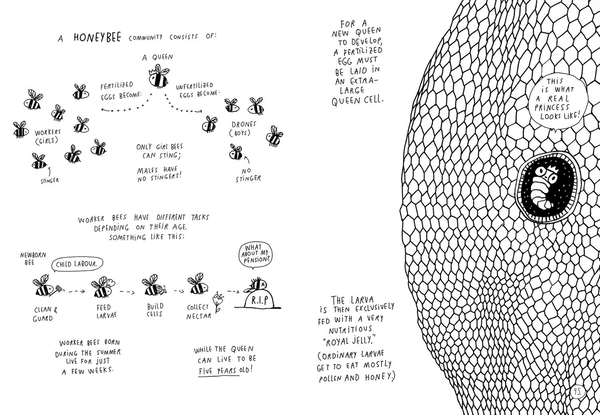 A HONEYBEE COMMUNITY CONSISTS OF:
A QUEEN
FERTILIZED
EGGS BECOME:
UNFERTILIZED
EGGS BECOME:
WORKERS
(GIRLS)
DRONES
(BOYS)
STINGER
ONLY GIRL BEES
CAN STING;
MALES HAVE
NO STINGERS!
NO
STINGER
WORKER BEES HAVE DIFFERENT TASKS
DEPENDING ON THEIR AGE.
SOMETHING LIKE THIS:
NEWBORN
BEE
CHILD LABOUR.
WHAT
ABOUT MY
PENSION?
R.I.P
CLEAN &
GUARD
FEED
LARVAE
BUILD
CELLS
COLLECT
NECTAR
WORKER BEES BORN
DURING THE SUMMER
LIVE FOR JUST
A FEW WEEKS.
WHILE THE QUEEN
CAN LIVE TO BE
FIVE YEARS OLD!
FOR A
NEW QUEEN
TO DEVELOP,
A FERTILIZED
EGG MUST
BE LAID IN
AN EXTRA-
LARGE
QUEEN CELL.
THIS
IS WHAT
A REAL
PRINCESS
LOOKS LIKE!
THE LARVA
IS THEN EXCLUSIVELY
FED WITH A VERY
NUTRITIOUS
"ROYAL JELLY."
(ORDINARY LARVAE
GET TO EAT MOSTLY
POLLEN AND HONEY)
45